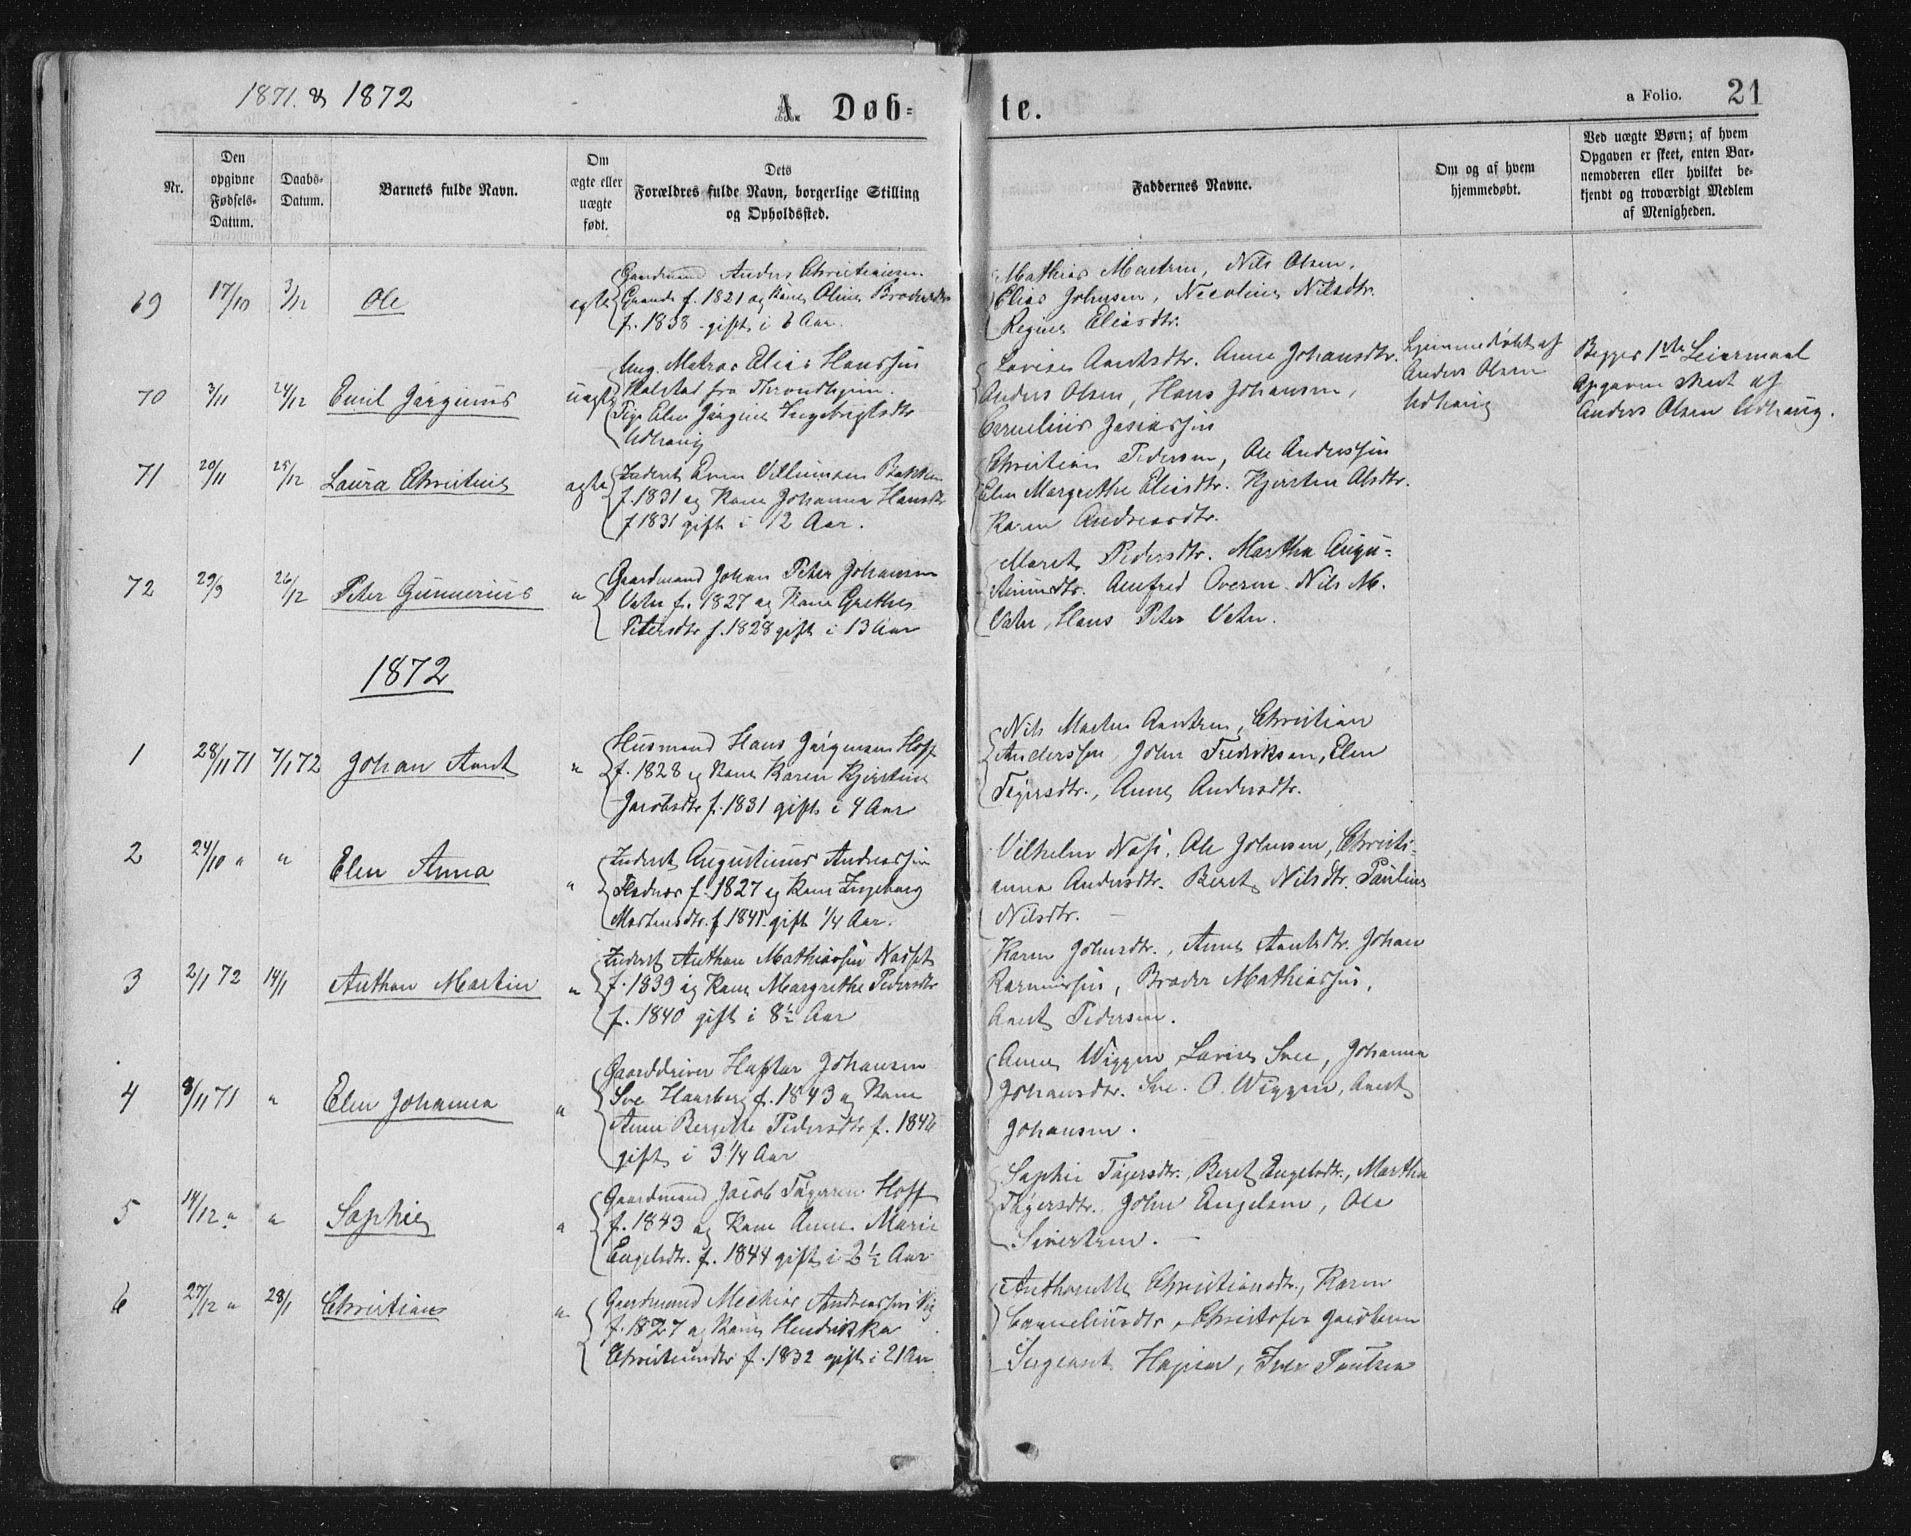 1871. & 1872
A. Døb=
te.
a Folio. 21
Nr.
Den opgivne Fødsels-Datum.
Daabs-Datum.
Barnets fulde Navn.
Om ægte eller uægte født.
Dets
Forældres fulde Navn, borgerlige Stilling
og Opholdssted.
Faddernes Navne.
Om og af hvem
hjemmedøbt.
Ved uægte Børn; af hvem
Opgaven er skeet, enten Bar-
nemoderen eller hvilket be-
kjendt og troværdigt Medlem
af Menigheden.
69 17/10 3/12 Ole egte
Gaardmand Anders Christiansen
f. 1821 og Kone Oline
f. 1838 gift i 6 Aar.
Mathias Nils Olsen,
Elias Johnsen, Nicoline Nilsdtr.
Regine Eliasdtr.
70 3/11 24/12 Emil Jørginus uegte
Ung. Matros Elias Hanssen
fra Throndhjem.
Pige Elen Jørgine Ingebrigtsdtr
Udhaug
Lovise Arntsdtr. Anne Johansdtr.
Anders Olsen, Hans Johansen,
Cornelius
hjemmedøbt af
Anders Olsen
Udhaug
Begges 1ste Leiermaal
Opgaven skeet af
Anders Olsen Udhaug.
71 20/11 25/12 Laura Christine egte
Inderst Even Villumsen Bakken
f. 1831 og Kone Johanna Hansdtr
f 1831 gift i 12 Aar.
Christian Pedersen, Ole Anderssen
Elen Margrethe Eliasdtr. Kjersten Olsdtr.
Karen Andreasdtr.
72 29/9 26/12 Peter Gunnerius "
Gaardmand Johan Peter Johansen
f. 1827 og Kone Grethe
Petersdtr f. 1828 gift i 13 Aar
Maret Pedersdtr. Martha Augu-
Nils M.
Hans Peter
1872
1 28/11 71 7/1 72 Johan Arnt "
Husmand Hans Jørgensen Hoff
f. 1828 og Kone Karen Kjerstine
Jacobsdtr f. 1831 gift i 4 Aar
Nils Martin Arntzen, Christian
Anderssen, John Fredriksen, Elen
Anne Andersdtr.
2 24/10 " " Elen Anna "
Inderst Augustinus Andreassen
f. 1827 og Kone Ingeborg
Mortensdtr. f. 1845 gift 1/4 Aar.
Vilhelm Ole Johnsen, Christi-
anna Andersdtr. Beret Nilsdtr. Pauline
Nilsdtr.
3 2/1 72 14/1 Anthon Martin "
Inderst Anthon Mathiassen
f. 1839 og Kone Margrethe Pedersdtr
f. 1840 gift i 8½ Aar
Karen Johnsdtr., Anne Arntsdtr. Johan
Rasmussen, Broder Mathiassen,
Arnt Pedersen.
4 8/11 71 " Elen Johanna "
Gaarddriver Haftor Johansen
Sve f. 1843 og Kone
Anne Bergitte Pedersdtr f. 1846
gift i 3 1/4 Aar
Anne Wiggen, Lovise Sve, Johanna
Johansdtr. Sve. O. Wiggen, Arnt
Johansen.
5 14/12 " " Sophie "
Gaardmand Jacob Hoff
f. 1843 og Kone Anne Marie
Engelsdtr. f. 1844 gift i 2½ Aar
Sophie Beret Engelsdtr., Martha
John Engelsen, Ole
Sivertsen.
6 27/12 " 28/1 Christian "
Gaardmand Andreassen
f. 1827 og Kone Hendrikka
f. 1832 gift i 21 Aar
Anthonette Christiansdtr, Karen
Corneliusdtr, Christofer Jacobsen
Sergeant Iver Paulsen